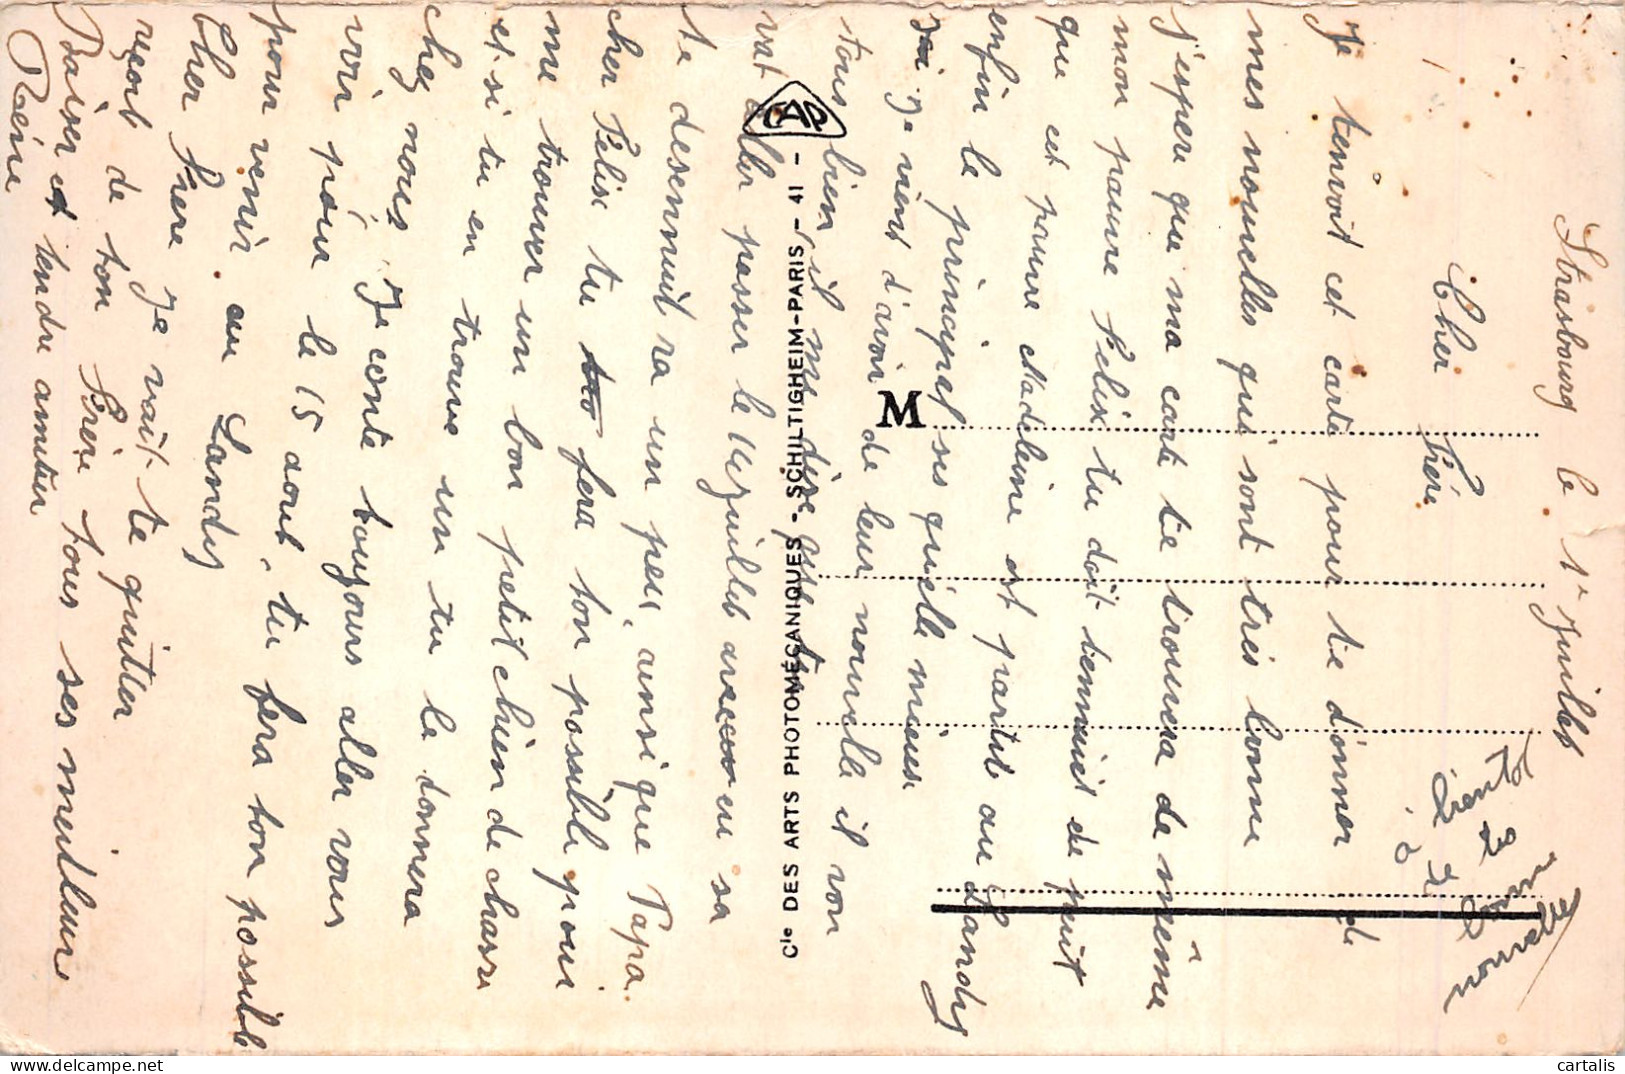 Strasbourg le 1er Juillet
Cher Frère
Je tenvoit cet carte pour te donner de
mes nouvelles qui sont très bonne
j'espere que ma carte te trouvera de même
mon pauvre Felix tu doit tennuiet de puit
que cet pauvre Madeleine est partit au Landy
enfin le principal ses quielle mieux
Je vient d'avoir de leur nouvelle il von
tous bien il me dise que tu
vat aller passer le Juillet en sa
te desennuit ra un peu, ainsi que Papa.
cher Félix tu fera ton possible pour
me trouver un bon petit chien de chasse
et si tu en trouve un tu le donnera
chez nous, Je conte toujours aller vous
voir pour le 15 aout, tu fera ton possible
pour venir au Landy
Cher Frere Je vait te quitter
reçoit de ton Frère tous ses meilleurs
Baiser et tendre amitier
René
à bientot
de tes
bonne
nouvelles
M
Cie DES ARTS PHOTOMÉCANIQUES - SCHILTIGHEIM-PARIS - 41 -
CAP
cartalis